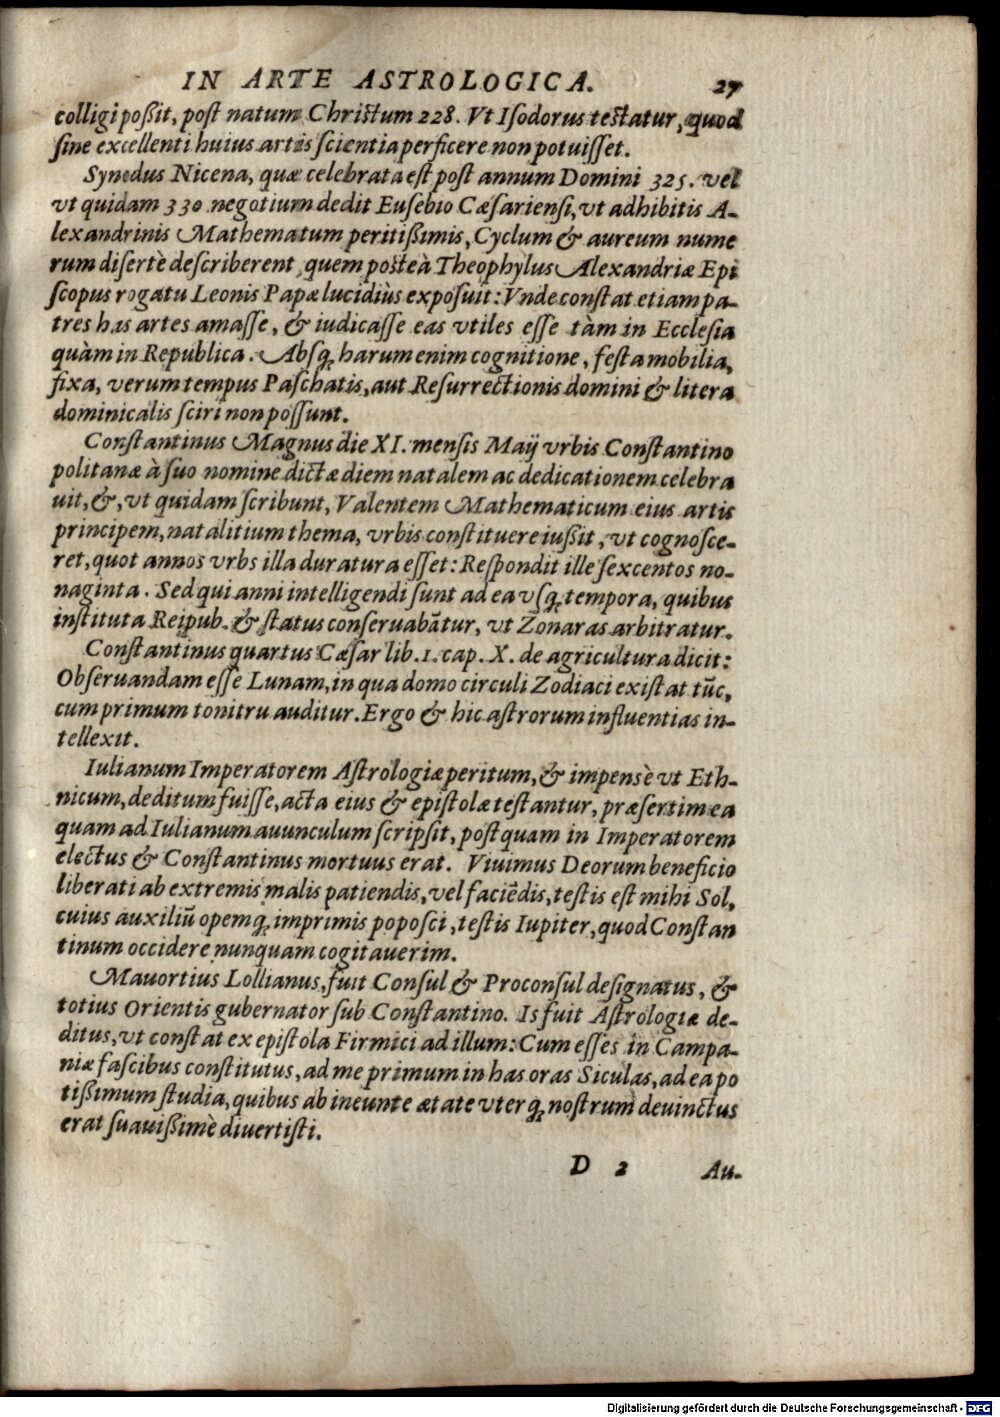 IN ARTE ASTROLOGICA. 27
colligi poßit, post natum Christum 228. Vt Isodorus testatur, quod
sine excellenti huius artis scientia perficere non potuisset.
Synodus Nicena, quæ celebrata est post annum Domini 325. vel
vt quidam 330 negotium dedit Eusebio Cæsariensi, vt adhibitis A-
lexandrinis Mathematum peritißimis, Cyclum & aureum nume
rum disertè describerent, quem posteà Theophylus Alexandriæ Epi
scopus rogatu Leonis Papæ lucidiùs exposuit: Vnde constat etiam pa-
tres has artes amasse, & iudicasse eas vtiles esse tàm in Ecclesia
quàm in Republica. Absq; harum enim cognitione, festa mobilia,
fixa, verum tempus Paschatis, aut Resurrectionis domini & litera
dominicalis sciri non possunt.
Constantinus Magnus die XI. mensis Maij vrbis Constantino
politanæ à suo nomine dictæ diem natalem ac dedicationem celebra
uit, &, vt quidam scribunt, Valentem Mathematicum eius artis
principem, natalitium thema, vrbis constituere iußit, vt cognosce-
ret, quot annos vrbs illa duratura esset: Respondit ille sexcentos no-
naginta. Sed qui anni intelligendi sunt ad ea vsq; tempora, quibus
instituta Reipub. & status conseruabãtur, vt Zonaras arbitratur.
Constantinus quartus Cæsar lib. 1. cap. X. de agricultura dicit:
Obseruandam esse Lunam, in qua domo circuli Zodiaci existat tũc,
cum primum tonitru auditur. Ergo & hic astrorum influentias in-
tellexit.
Iulianum Imperatorem Astrologiæ peritum, & impensè vt Eth-
nicum, deditum fuisse, acta eius & epistolæ testantur, præsertim ea
quam ad Iulianum auunculum scripsit, postquam in Imperatorem
electus & Constantinus mortuus erat. Viuimus Deorum beneficio
liberati ab extremis malis patiendis, vel faciẽdis, testis est mihi Sol,
cuius auxiliũ opemq; imprimis poposci, testis Iupiter, quod Constan
tinum occidere nunquam cogitauerim.
Mauortius Lollianus, fuit Consul & Proconsul designatus, &
totius Orientis gubernator sub Constantino. Is fuit Astrologiæ de-
ditus, vt constat ex epistola Firmici ad illum: Cum esses in Campa-
niæ fascibus constitutus, ad me primum in has oras Siculas, ad ea po
tißimum studia, quibus ab ineunte ætate vterq; nostrum deuinctus
erat suauißimè diuertisti.
D 2 Au-
Digitalisierung gefördert durch die Deutsche Forschungsgemeinschaft - DFG